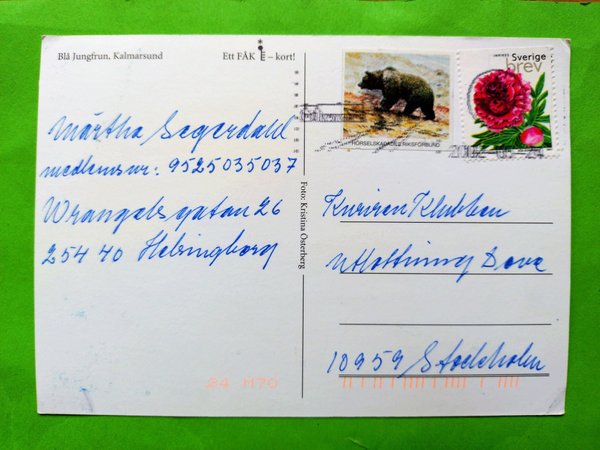 Blå Jungfrun, Kalmarsund
Ett FÅK – kort!
Märtha Segerdahl
medlemsnr: 9525035037
Wrangelsgatan 26
254 40 Helsingborg
Foto: Kristina Österberg
HÖRSELSKADADES RIKSFÖRBUND
Sverige
brev
Kuriren Klubben
Utlottning
10959 Stockholm
84 M70